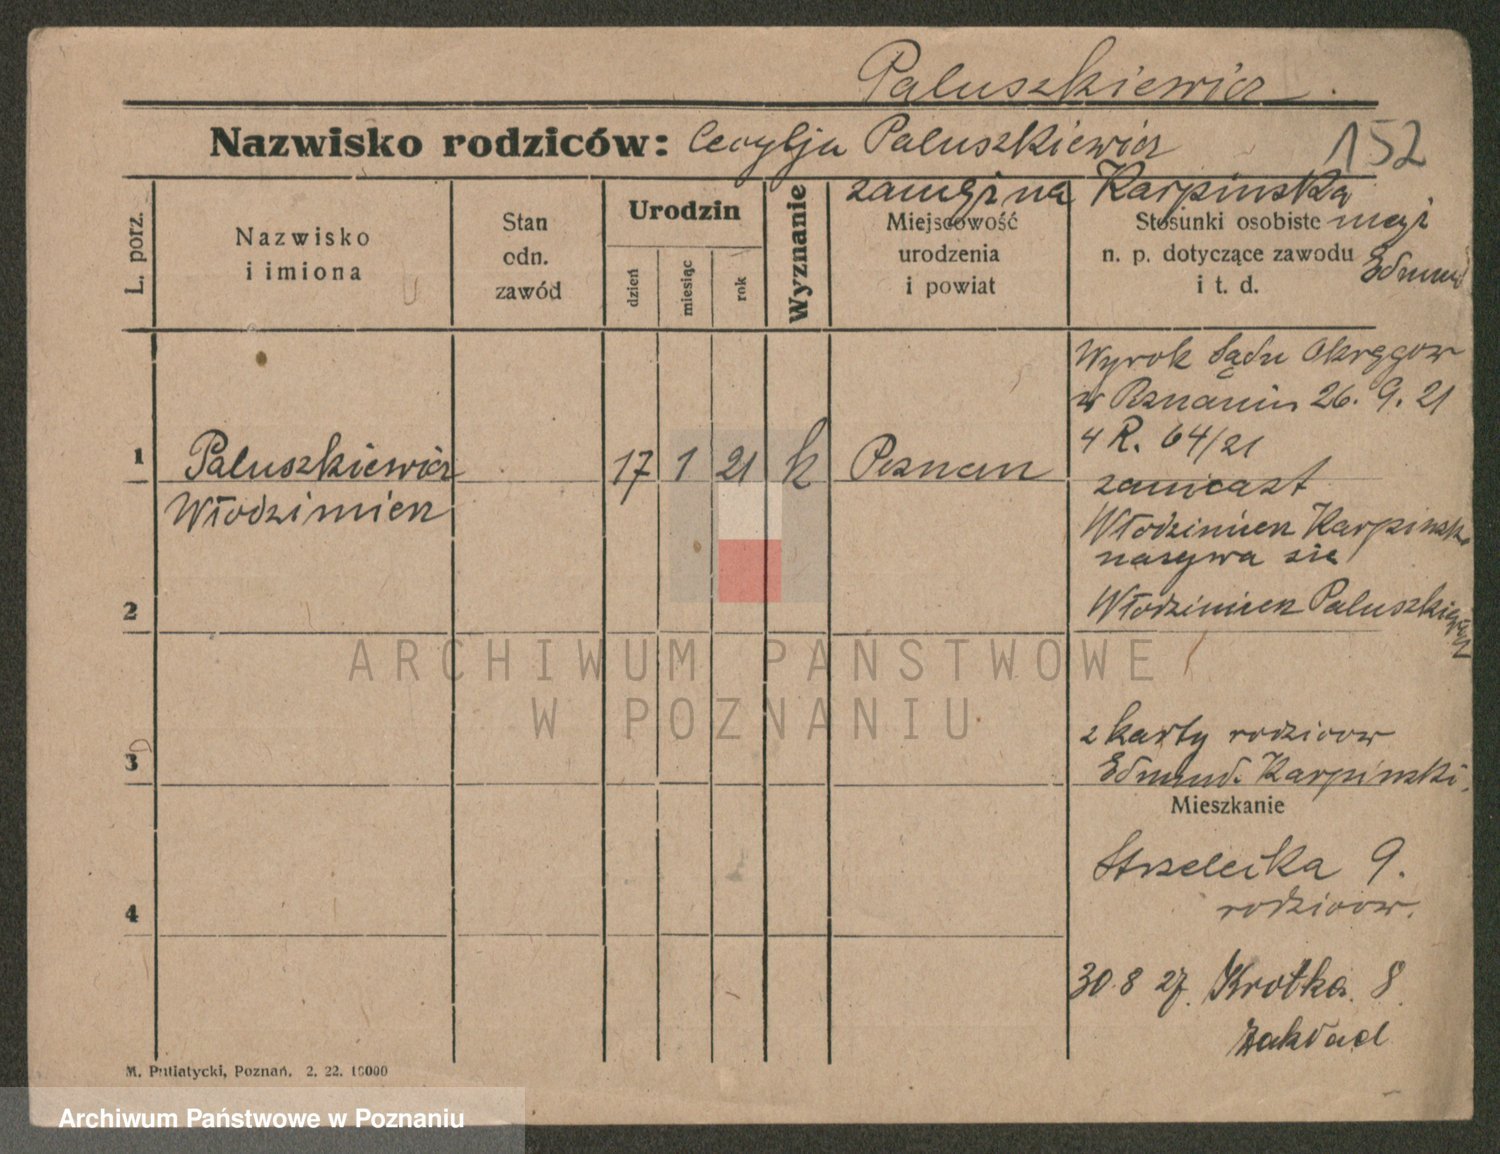 Paluszkiewicz.
Nazwisko rodziców: Cecylja Paluszkiewicz
152
zamężna Karpinska
mąż
Edmund
L. porz.
Nazwisko
i imiona
Stan
odn.
zawód
Urodzin
dzień
miesiąc
rok
Wyznanie
Miejscowość
urodzenia
i powiat
Stosunki osobiste
n. p. dotyczące zawodu
i t. d.
1
Paluszkiewicz
Włodzimierz
17 1 21 k Poznan
Wyrok Sądu Okręgow
w Poznaniu 26. 9. 21
4 R. 64/21
zamiast
Włodzimierz Karpinsk
nazywa sie
Włodzimierz Paluszkiewicz
2
ARCHIWUM PAŃSTWOWE
W POZNANIU
3
z karty rodzicow
Edmund. Karpinski.
Mieszkanie
Strzelecka 9.
rodzicow.
4
30.8 27. Krotka 8.
zakład
M. Putiatycki, Poznań. 2. 22. 10000
Archiwum Państwowe w Poznaniu